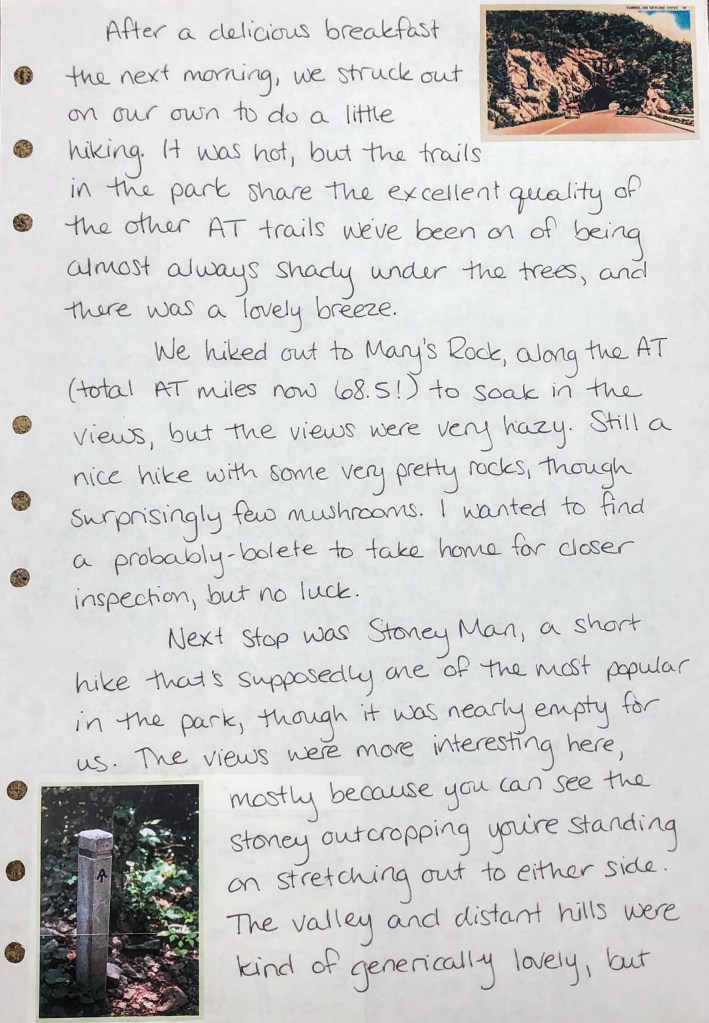 TUNNEL ON SKYLINE DRIVE
After a delicious breakfast
the next morning, we struck out
on our own to do a little
hiking. It was hot, but the trails
in the park share the excellent quality of
the other AT trails we've been on of being
almost always shady under the trees, and
there was a lovely breeze.
We hiked out to Mary's Rock, along the AT
(total AT miles now 68.5!) to soak in the
views, but the views were very hazy. Still a
nice hike with some very pretty rocks, though
surprisingly few mushrooms. I wanted to find
a probably-bolete to take home for closer
inspection, but no luck.
Next stop was Stoney Man, a short
hike that's supposedly one of the most popular
in the park, though it was nearly empty for
us. The views were more interesting here,
mostly because you can see the
stoney outcropping you're standing
on stretching out to either side.
The valley and distant hills were
kind of generically lovely, but